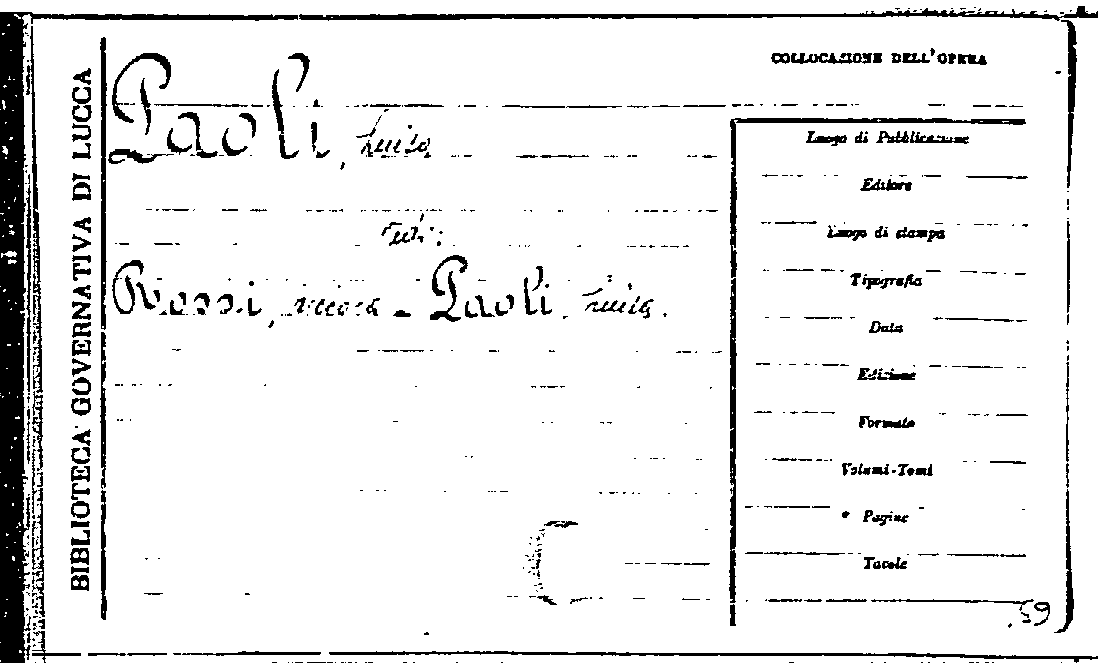 BIBLIOTECA GOVERNATIVA DI LUCCA
COLLOCAZIONE DELL'OPERA
Paoli, Luisa
Luogo di Pubblicazione
Editore
Luogo di stampa
ved:
Tipografia
Rossi, - Paoli, Luisa.
Data
Edizione
Formato
Volumi-Tomi
Pagine
Tavole
59